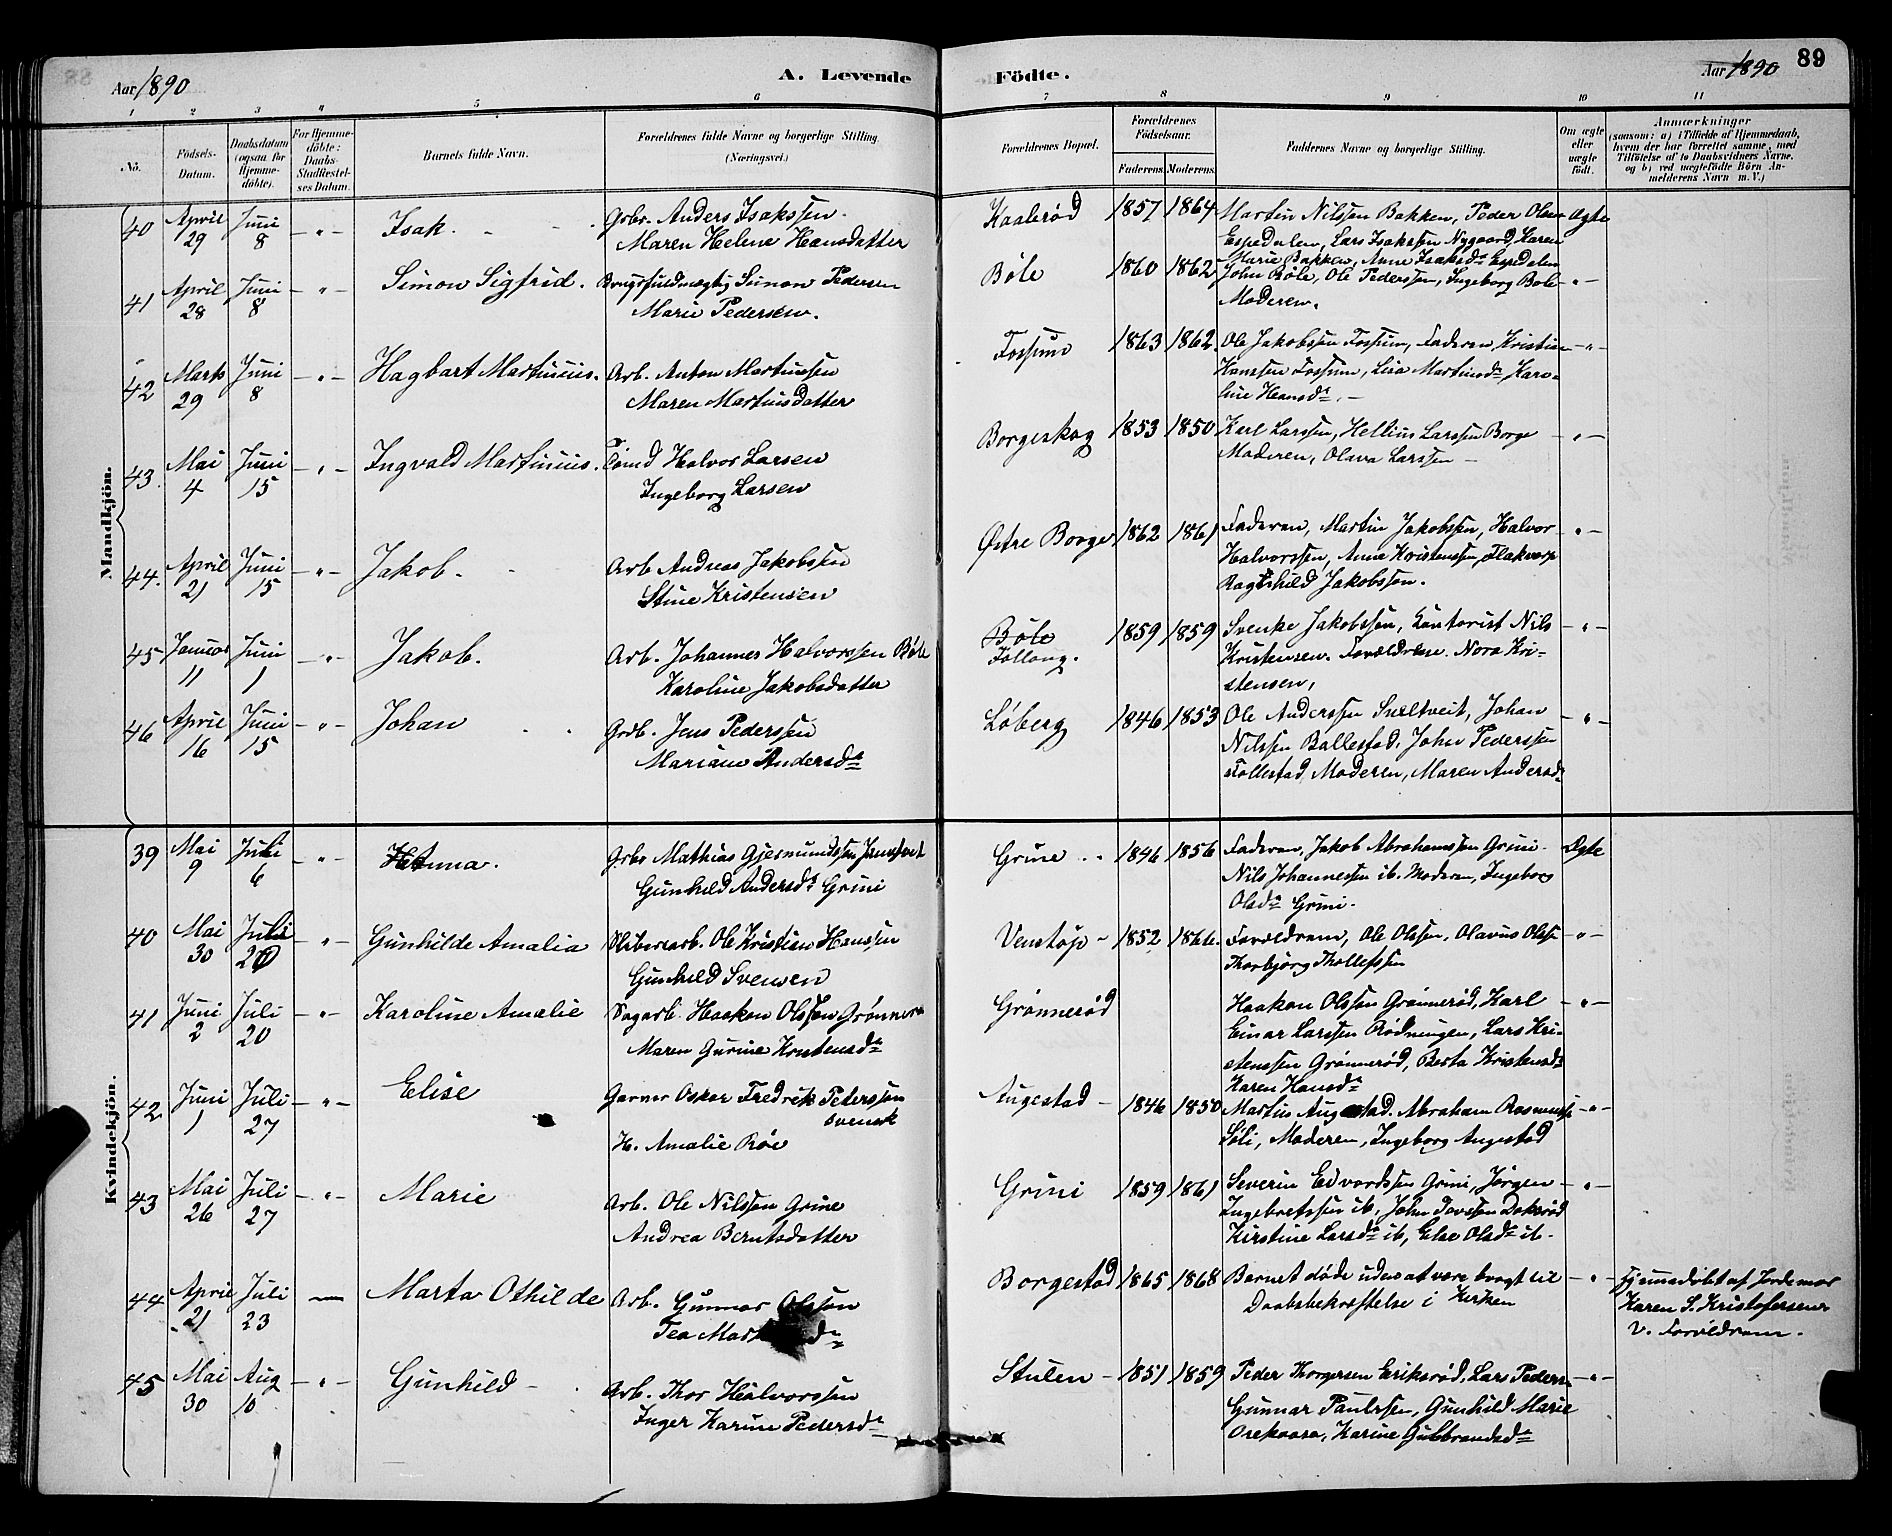 Aar 1890
A. Levende Födte.
Aar 1890 89
1 2 3 4 5 6 7 8 9 10 11
No.
Födsels-
Datum.
Daabsdatum
(ogsaa for
Hjemme-
döbte).
For Hjemme-
döbte:
Daabs-
Stadfæstel-
ses Datum.
Barnets fulde Navn.
Forældrenes fulde Navne og borgerlige Stilling
(Næringsvei.)
Forældrenes Bopæl.
Forældrenes
Födselsaar.
Faderens Moderens
Faddernes Navne og borgerlige Stilling.
Om ægte
eller
uægte
födt.
Anmærkninger
(saasom: a) i Tilfælde af Hjemmedaab,
hvem der har forrettet samme, med
Tilföielse af to Daabsvidners Navne,
og b) ved uægtefödte Börn An-
melderens Navn m. V.)
Mandkjön.
40 April 29 Juni 8 — " — Isak.
Gbr. Anders Isakssen.
Maren Helene Hansdatter
Kaalerød 1857 1864
Martin Nilssen Bakken, Peder Olsen
Espedalen, Lars Isakssen Nygaard, Karen
Marie Bakken, Anne Isaksdr Espedalen
Ægte
41 April 28 Juni 8 — " — Simon Sigfrid.
Brugsfuldmægtig Simon Pedersen
Marie Pedersen.
Bøle 1860 1862
John Bøle, Ole Pederssen, Ingeborg Bøle
Moderen.
— " —
42 Marts 29 Juni 8 — " — Hagbart Martinius.
Arb. Anton Martinsen
Maren Martinsdatter
Fossum 1863 1862.
Ole Jakobssen Fossum, Faderen, Kristian
Hanssen Fossum, Lisa Martinsdr, Karo-
line Hansdr. —
— " —
43. Mai 4 Juni 15 — " — Ingvald Martinius.
Tømd Halvor Larsen
Ingeborg Larsen
Borgeskog 1853 1850
Karl Larssen, Hellius Larssen Borge
Moderen, Olava Larssen —
— " —
44. April 21 Juni 15 — " — Jakob.
Arb Andreas Jakobssen
Stine Kristensen
Østre Borge 1862 1861
Faderen, Martin Jakobssen, Halvor
Halvorssen, Anne Kristenssen Flakvarp
Ragnhild Jakobssen.
— " —
45 Januar 11 Juni 1 — " — Jakob.
Arb. Johannes Halvorssen Bøle
Karoline Jakobsdatter
Bøle
1859 1859
Svenke Jakobssen, Kontorist Nils
Kristensen. Forældrene. Nora Kri-
stensen,
— " —
46 April 16 Juni 15 — " — Johan
Grdb. Jens Pederssen
Mariane Andersdr
Løberg 1846 1853
Ole Anderssen Sneltveit, Johan
Nilssen Ballestad, John Pederssen
Follestad, Moderen, Maren Andersdr
— " —
Kvindekjön.
39 Mai 9 Juli 6 — " — Anna.
Grbr Mathias Gjermundssen
Gunhild Andersdr Grini
Grine 1846 1856
Faderen, Jakob Abrahamssen Grini
Nils Johannessen ib. Moderen, Ingeborg
Olsdr Grini.
Ægte
40 Mai 30 Juli 20 — " — Gunhilde Amalia
Sliberearb. Ole Kristian Hanssen
Gunhild Svensen
Venstøp 1852 1866.
Forældrene, Ole Olssen, Olavus Olssen
Thorbjørg Thollefssen
— " —
41 Juni 2 Juli 20 — " — Karoline Amalie
Sagarb. Haakon Olssøn Grønnerø
Maren Gurine Kristensdr
Grønnerød
Haakon Olssøn Grønnerød, Karl
Einar Larssen Rødningen, Lars Kri-
stenssen Grønnerød, Berta Kristensdr
Karen Hansdr
— " —
42 Juni 1 Juli 27 — " — Elise
Garver Oskar Fredrik Peterssøn
Svensk
H. Amalie Røe
Augestad 1846 1850
Martius Augestad. Abraham Rasmussen
Løli, Moderen, Ingeborg Augestad
— " —
43 Mai 26 Juli 27 — " — Marie
Arb. Ole Nilssøn Grine
Andrea Berntsdatter
Grini 1859 1861
Severin Edvardssen Grini, Jørgen
Ingebretssen ib, John Tovssen Doksrød
Kirstine Larsdr ib, Else Olsdr ib.
— " —
44 April 21 Juli 23 — Marta Othilde
Arb. Gunnar Olssøn
Tea
Borgestad 1865 1868
Barnet døde uden at være bragt til
Daabsbekræftelse i Kirken
— " —
Hjemmedøbt af Jordemor
Karen S. Kristofersen
v. Forældrene.
45 Mai 30 Aug 10 — " — Gunhild
Arb. Thor Halvorssen
Inger Karine Pedersdr
Stulen 1851 1859
Peder Thorgersen Eriksrød, Lars Pederssen
Gunnar Paulssen, Gunhild Marie
Osekaasa, Karine Gulbrandsdr
— " —